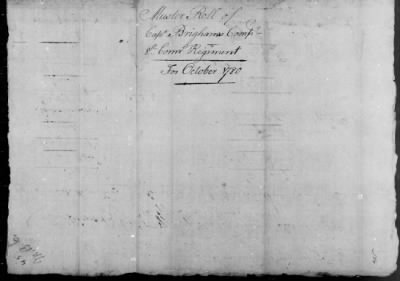 Muster Roll of
Capt Brighams Compy
8th Connt Regiment
For October 1780